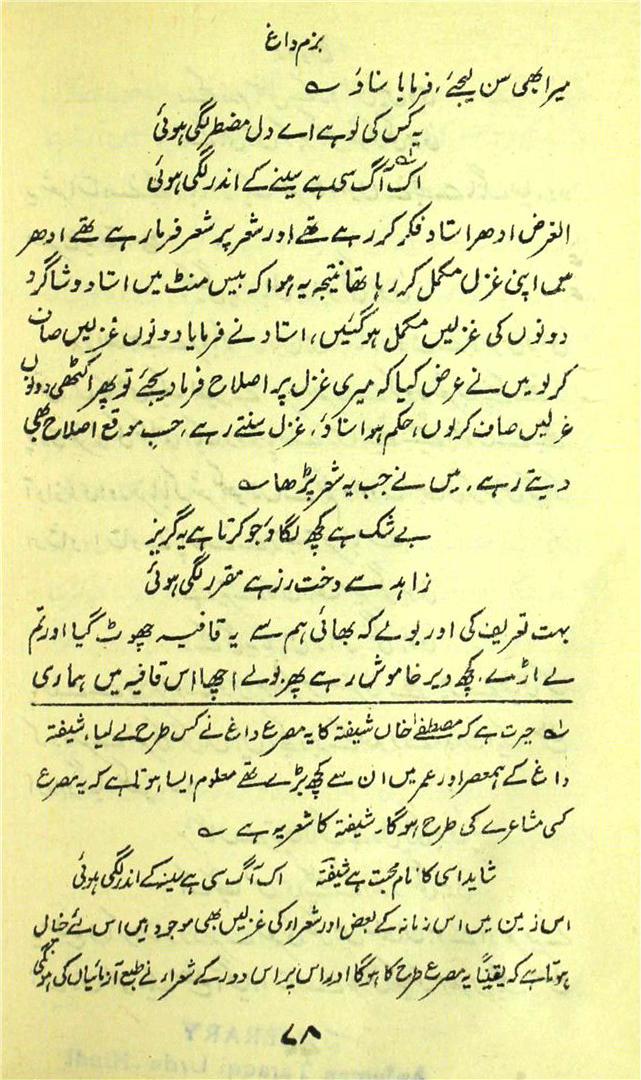 بزم داغ
میرا بھی سن لیجئے، فرمایا سناؤ ؎
یہ کس کی لو ہے اے دل مضطر لگی ہوئی
اک آگ سی ہے سینے کے اندر لگی ہوئی ؎۱
الغرض ادھر استاد فکر کر رہے تھے اور شعر پر شعر فرما رہے تھے ادھر
میں اپنی غزل مکمل کر رہا تھا نتیجہ یہ ہوا کہ بیس منٹ میں استاد و شاگرد
دونوں کی غزلیں مکمل ہوگئیں، استاد نے فرمایا دونوں غزلیں صاف
کرلو میں نے عرض کیا کہ میری غزل پر اصلاح فرما دیجئے تو پھر اکٹھی دونوں
غزلیں صاف کرلوں، حکم ہوا سناؤ، غزل سنتے رہے، حسب موقع اصلاح بھی
دیتے رہے، میں نے جب یہ شعر پڑھا ؎
بے شک ہے کچھ لگاؤ جو کرتا ہے یہ گریز
زاہد سے دخت رز ہے مقرر لگی ہوئی
بہت تعریف کی اور بولے کہ بھائی ہم سے یہ قافیہ چھوٹ گیا اور تم
لے اڑے، کچھ دیر خاموش رہے پھر بولے اچھا اس قافیہ میں ہماری
؎۱ حیرت ہے کہ مصطفےٰ خاں شیفتہ کا یہ مصرع داغ نے کس طرح لے لیا، شیفتہ
داغ کے ہمعصر اور عمر میں ان سے کچھ بڑے تھے معلوم ایسا ہوتا ہے کہ یہ مصرع
کسی مشاعرے کی طرح ہوگا، شیفتہ کا شعر یہ ہے ؎
شاید اسی کا نام محبت ہے شیفتہ اک آگ سی ہے سینہ کے اندر لگی ہوئی
اس زمین میں اس زمانہ کے بعض اور شعراء کی غزلیں بھی موجود ہیں اس لئے خیال
ہوتا ہے کہ یقیناً یہ مصرع طرح کا ہوگا اور اس پر اس دور کے شعراء نے طبع آزمائیاں کی ہونگی
۷۸